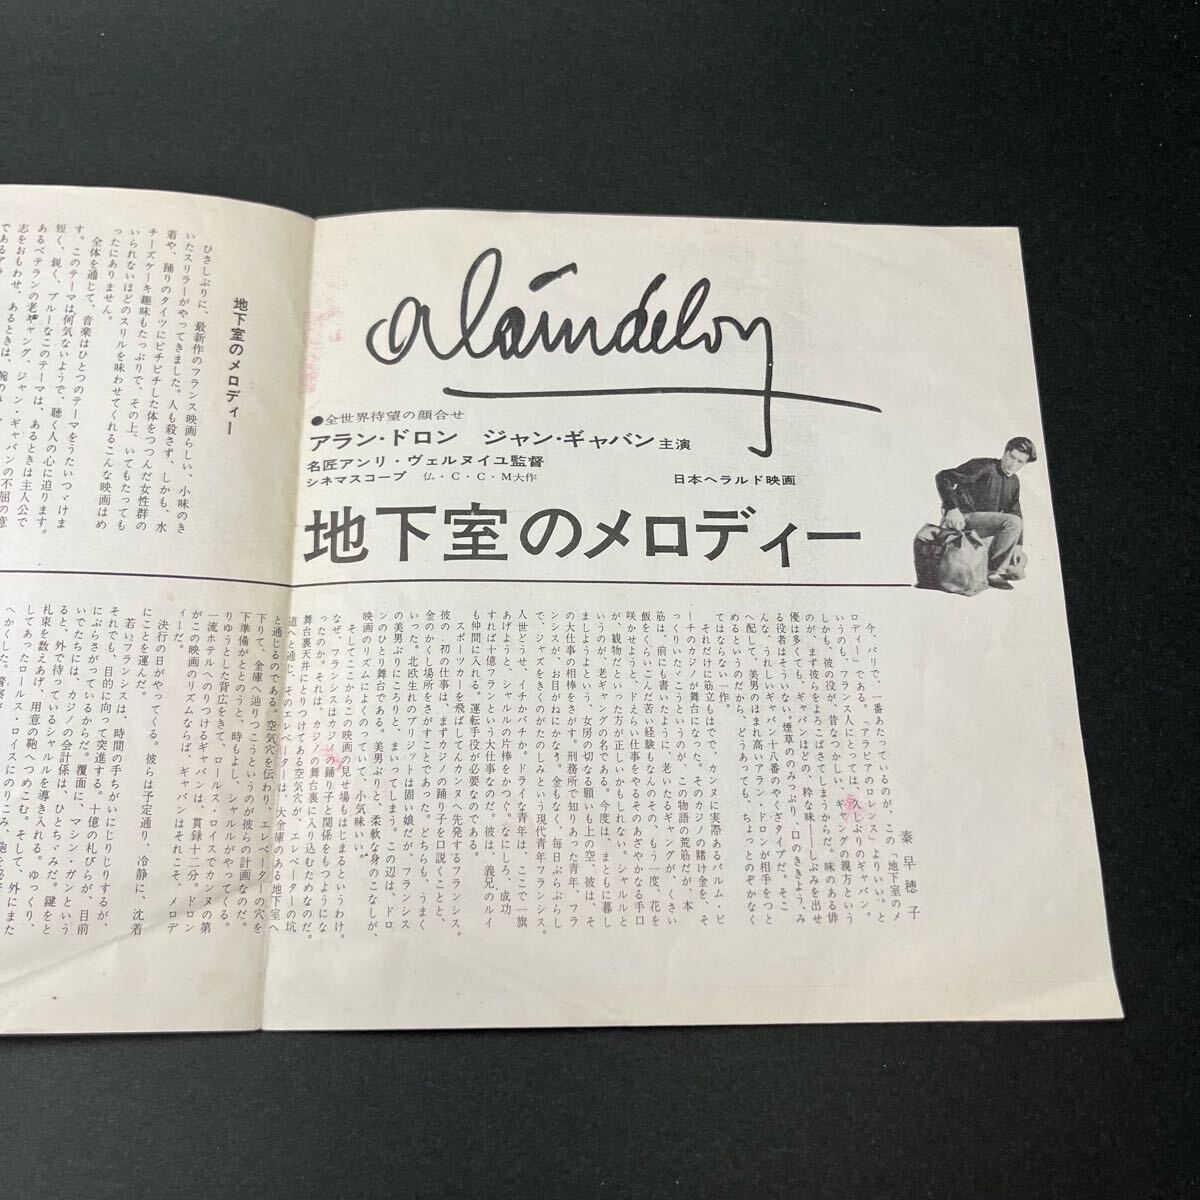 alaindelon
●全世界待望の顔合せ
アラン・ドロン　ジャン・ギャバン 主演
名匠アンリ・ヴェルヌイユ監督
シネマスコープ　仏・C・C・M大作　日本ヘラルド映画
地下室のメロディー
秦早穂子
今、パリで、一番あたっているのが、この「地下室のメ
ロディー」である。「アラビアのロレンス」よりいい。と
いうのも、フランス人にとっては、久しぶりのギャバン。
しかも、彼の役が、昔なつかしい、ギャングの親方という
のが、まず彼らをよろこばさてしまうからだ。味のある俳
優は多くても、ギャバンほどの、粋な味――しぶみを出せ
る役者はそういない。煙草ののみっぷり、口のききよう、み
んな、うれしいギャバン十八番のやくざタイプだ。そこ
へ配して、美男のほまれ高いアラン・ドロンが相手をつと
めるというのだから、どうあっても、ちょっとのぞかなく
てはならない一作。
それだけに筋立もはでで、カンヌに実際あるパルム・ビ
ーチのカジノが舞台になった。そのカジノの賭け金を、そ
っくりいたゞこうというのが、この物語の荒筋だが、本
筋は、前にも書いたように、老いたるギャングが、くさい
飯をくらいこんだ苦い経験もなんのその、もう一度、花を
咲かせようと、ドえらい仕事をやるそのあざやかなる手口
が、観物だといった方が正しいかもしれない。シャルルと
いうのが、老ギャングの名である。今度は、まともに暮し
ましょうよという、女房の切なる願いも上の空、彼は、そ
の大仕事の相棒をさがす。刑務所で知りあった青年、フラ
ンシスが、お目がねにかなう。金もなく、毎日ぶらぶらし
て、ジャズをきくのがたのしみという現代青年フランシス。
人世どうせ、イチかバチか。ドライな青年は、ここで一旗
あげようと、シャルルの片棒をかつぐ。なにしろ、成功
すれば十億フランという大仕事なのだ。彼は、義兄のルイ
も仲間に入れる。運転手役が必要なのである。
スポーツカーを飛ばしてカンヌへ先発するフランシス。
彼の初の仕事は、まずカジノの踊り子を口説くことと、
金のかくし場所をさがすことであった。どちらも、うまく
いった。北欧生れのブリジットは固い娘だが、フランシス
の美男ぶりにころりと、まいってしまう。この辺は、ドロ
ンのひとり舞台である。美男ぶりと、柔軟な身のこなしが、
映画のリズムによくのっていて、小気味いい。
そしてここからこの映画の見せ場もはじまるというわけ。
なぜ、フランシスはカジノの踊り子と関係をもつようにな
ったのか。それは、カジノの舞台裏に入り込むためなのだ。
舞台裏天井にとりつけてある空気穴が、エレベーターの坑
道へと通じ、そのエレベーターは、大金庫のある地下室へ
と通じるのである。空気穴を伝わり、エレベーターの穴を
下りて、金庫へ辿りつこうというのが彼らの計画なのだ。
下準備がととのうと、時もよし、シャルルがやってくる。
りゅうとした背広をきて、ロールス・ロイスでカンヌの第
一流ホテルへのりつけるギャバンは、貫録十二分、ドロン
がこの映画のリズムならば、ギャバンはそれこそ、メロデ
ィーだ。
決行の日がやってくる。彼らは予定通り、冷静に、沈着
にことを運んだ。
若いフランシスは、時間の手ちがいにじりじりするが、
それでも、目的に向って突進する。十億の札びらが、目前
にぶらさがっているからだ。覆面に、マシン・ガンという
いでたちには、カジノの会計係は、ひとちゞみだ。鍵をと
ると、外で待っているシャルルを導き入れる。ゆっくり、
札束を数えあげ、用意の鞄へつめこむ。そして、外にまた
してあったロールス・ロイスにのりこみ、
へかくした。
地下室のメロディー
ひさしぶりに、最新作のフランス映画らしい、小味のき
いたスリラーがやってきました。人も殺さず、しかも、水
着や、踊りのタイツにピチピチした体をつつんだ女性群の
チーズケーキ趣味もたっぷりで、その上、いてもたっても
いられないほどのスリルを味わせてくれるこんな映画はめ
ったにありません。
全体を通じて、音楽はひとつのテーマをうたいつゞけま
す。このテーマは何気ないようで、聴く人の心に迫ります。
短く、鋭く、ブルーなこのテーマは、あるときは主人公で
あるベテランの老ギャング、ジャン・ギャバンの不屈の意
志をおもわせ、あるときは、